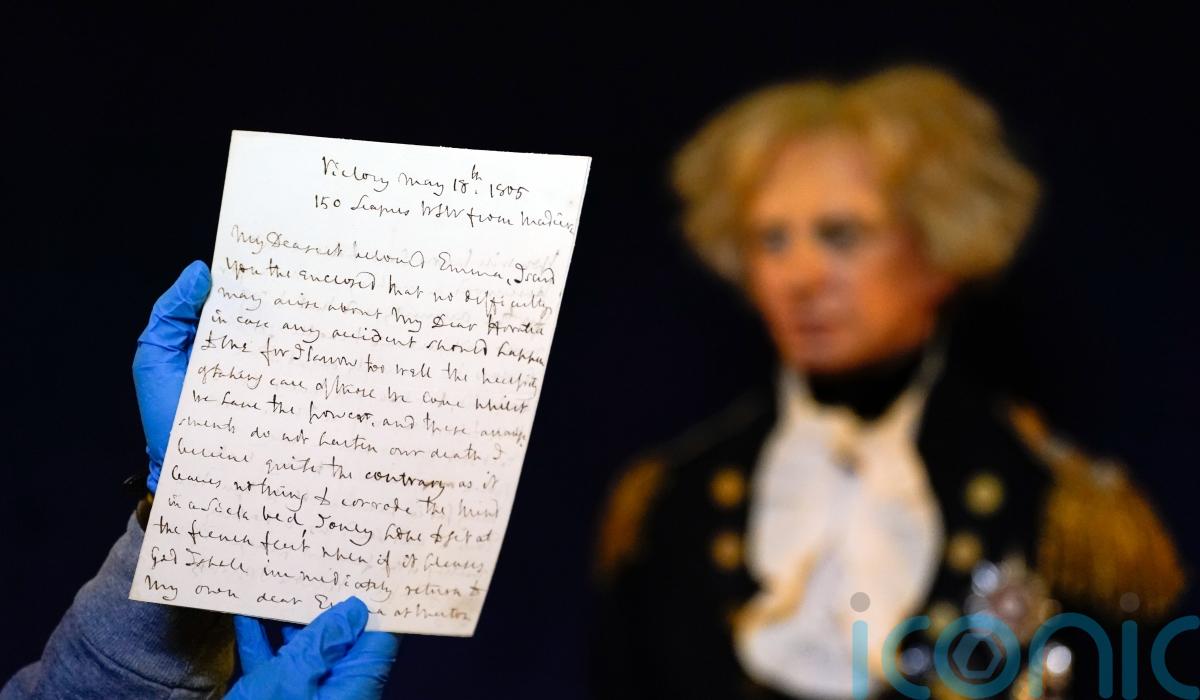 Victory May 18th. 1805
150 Leagues WSW from Madeira
My Dearest beloved Emma, I send
you the enclosed that no difficultys
may arise about My Dear Horatia
in case any accident should happen
to me for I know too well the necessity
of taking care of those we love whilst
we have the power, and these arrange-
ments do not hasten our death I
believe quite the contrary as it
leaves nothing to corrode the mind
in a sick bed, I only hope to get at
the french fleet when if it pleases
God I shall immediately return to
My own dear Emma at Merton
iconic